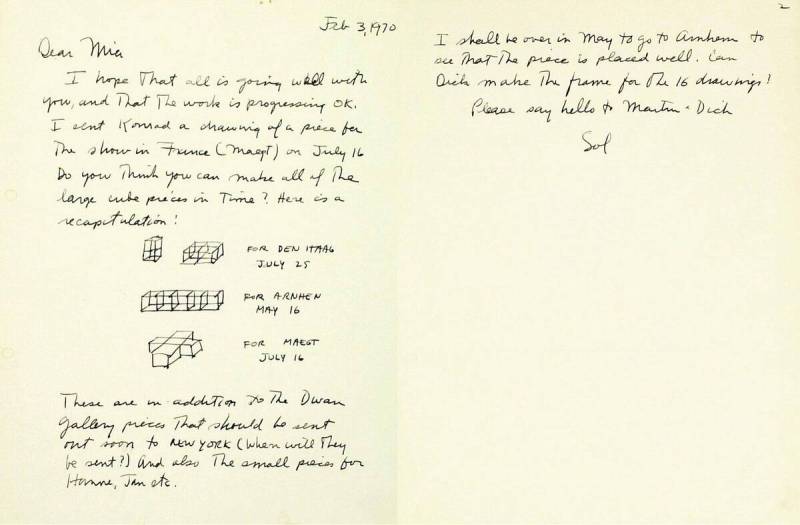 Feb 3, 1970
Dear Mia
I hope that all is going well with
you, and that the work is progressing OK.
I sent Konrad a drawing of a piece for
the show in France (Maegt) on July 16
Do you think you can make all of the
large cube pieces in time? Here is a
recapitulation:
FOR DEN HAAG
JULY 25
FOR ARNHEN
MAY 16
FOR MAEGT
JULY 16
These are in addition to the Dwan
Gallery pieces that should be sent
out soon to NEW YORK (when will they
be sent?) And also the small pieces for
Hanne, Jan etc.
2
I shall be over in May to go to Arnhem to
see that the piece is placed well. Can
Dick make the frame for the 16 drawings?
Please say hello to Martin + Dick
Sol